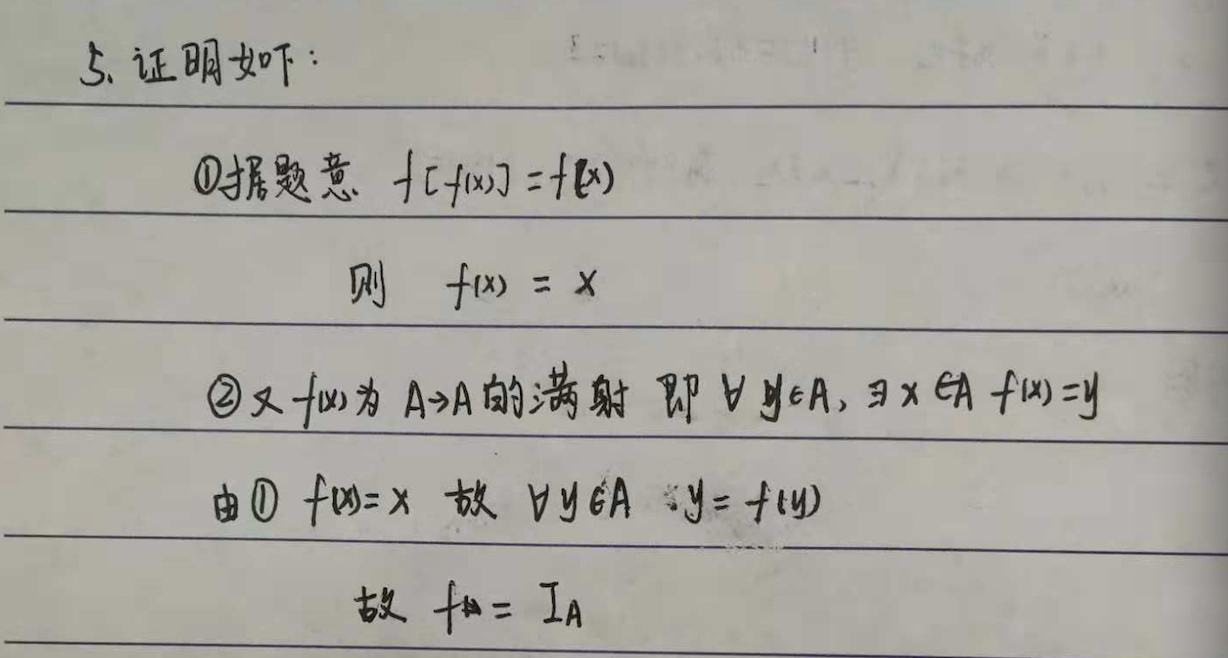 5. 证明如下:
①据题意 f[f(x)]=f(x)
则 f(x) = x
②又f(x)为 A→A的满射 即 ∀ y∈A, ∃ x ∈A f(x)=y
由① f(x)=x 故 ∀y∈A :y= f(y)
故 f = I_A